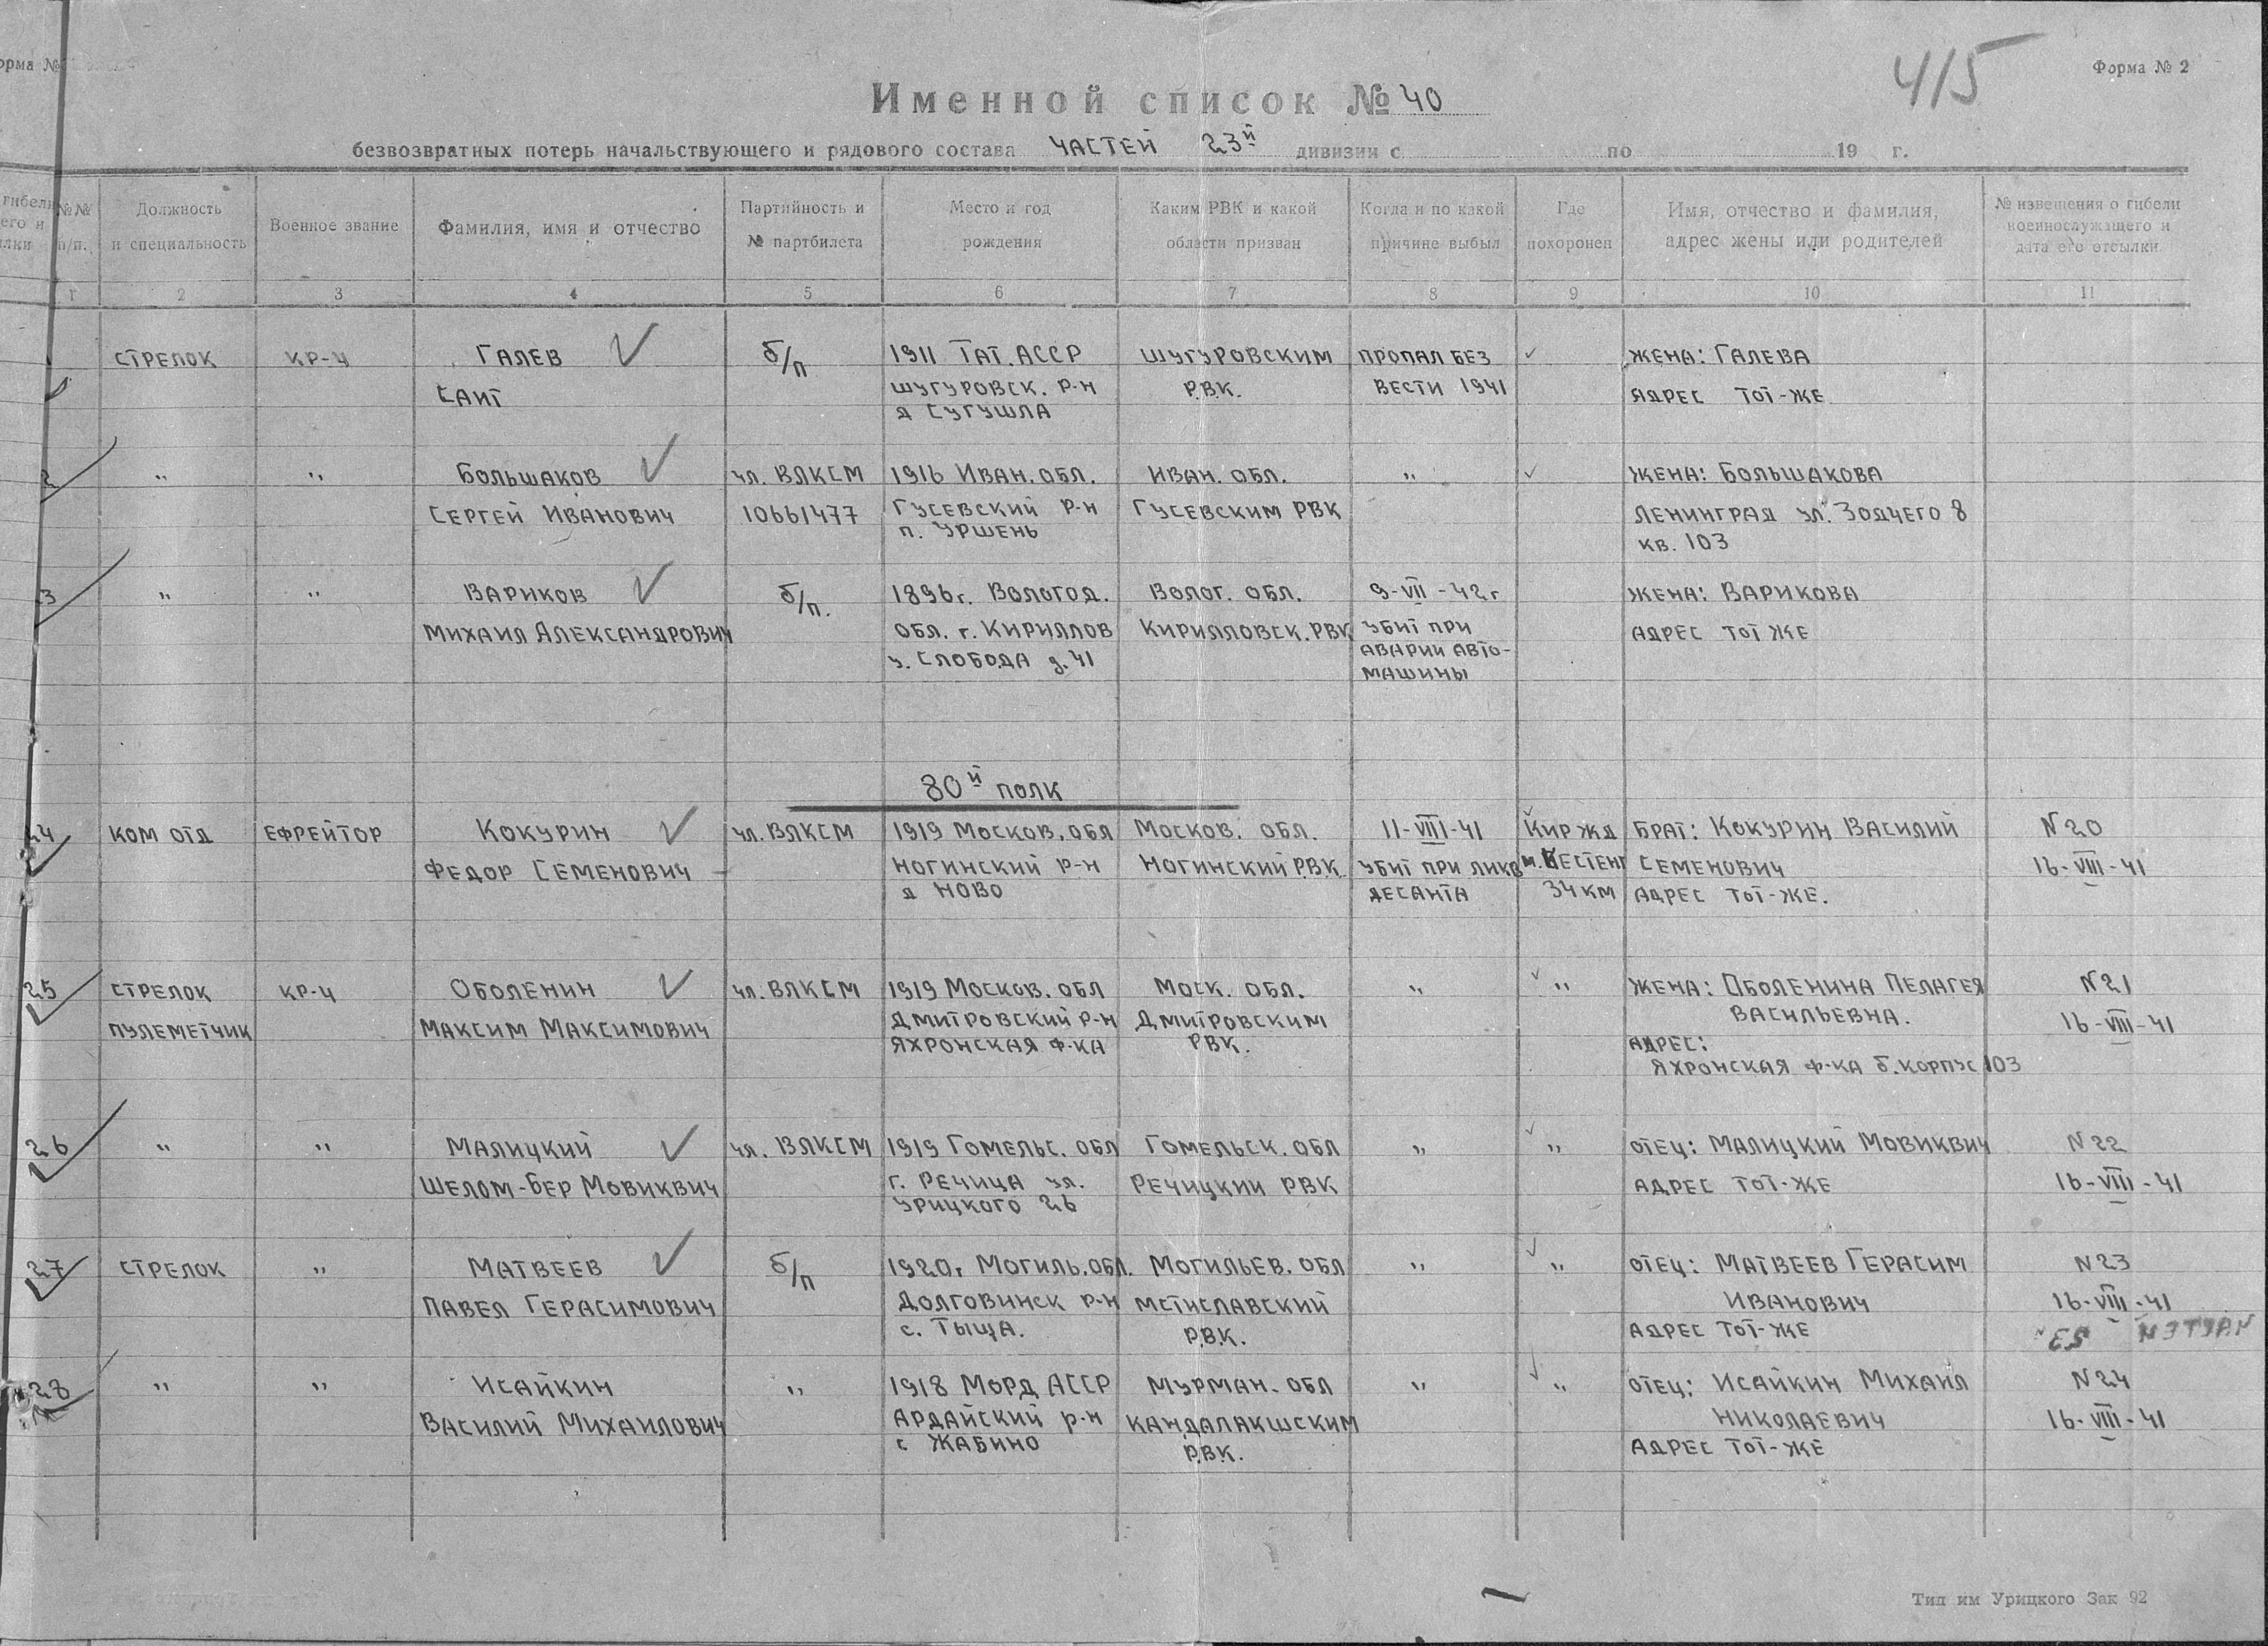 орма №
415
Форма № 2
Именной список № 40
безвозвратных потерь начальствующего и рядового состава ЧАСТЕЙ 23й дивизии с по 19 г.
гибели его и лки
№№ п/п.
Должность и специальность
Военное звание
Фамилия, имя и отчество
Партийность и № партбилета
Место и год рождения
Каким РВК и какой области призван
Когда и по какой причине выбыл
Где похоронен
Имя, отчество и фамилия, адрес жены или родителей
№ извещения о гибели военнослужащего и дата его отсылки
1 2 3 4 5 6 7 8 9 10 11
СТРЕЛОК КР-Ц ГАЛЕВ б/п 1911 ТАТ. АССР ШУГУРОВСКИМ ПРОПАЛ БЕЗ ЖЕНА: ГАЛЕВА
САИТ ШУГУРОВСК. Р-Н Р.В.К. ВЕСТИ 1941 АДРЕС ТОТ-ЖЕ
Д СУГУШЛА
2 " " БОЛЬШАКОВ чл. ВЛКСМ 1916 ИВАН. ОБЛ. ИВАН. ОБЛ. " ЖЕНА: БОЛЬШАКОВА
СЕРГЕЙ ИВАНОВИЧ 10661477 ГУСЕВСКИЙ Р-Н ГУСЕВСКИМ РВК ЛЕНИНГРАД УЛ. ЗОДЧЕГО 8
П. УРШЕНЬ КВ. 103
3 " " ВАРИКОВ б/п. 1896г. ВОЛОГОД. ВОЛОГ. ОБЛ. 9-VII-42г ЖЕНА: ВАРИКОВА
МИХАИЛ АЛЕКСАНДРОВИЧ ОБЛ. г. КИРИЛЛОВ КИРИЛЛОВСК. РВК УБИТ ПРИ АДРЕС ТОТ ЖЕ
у. СЛОБОДА д. 41 АВАРИИ АВТО-
МАШИНЫ
80й ПОЛК
24 КОМ ОТД ЕФРЕЙТОР КОКУРИН чл. ВЛКСМ 1919 МОСКОВ. ОБЛ МОСКОВ. ОБЛ. 11-VIII-41 КИР ЖД БРАТ: КОКУРИН ВАСИЛИЙ N 20
ФЕДОР СЕМЕНОВИЧ НОГИНСКИЙ Р-Н НОГИНСКИЙ Р.В.К. УБИТ ПРИ ЛИКВ КЕСТЕНГ СЕМЕНОВИЧ 16-VIII-41
Д НОВО ДЕСАНТА 34 КМ АДРЕС ТОТ-ЖЕ.
25 СТРЕЛОК КР-Ц ОБОЛЕНИН чл. ВЛКСМ 1919 МОСКОВ. ОБЛ МОСК. ОБЛ. " " ЖЕНА: ОБОЛЕНИНА ПЕЛАГЕЯ N 21
ПУЛЕМЕТЧИК МАКСИМ МАКСИМОВИЧ ДМИТРОВСКИЙ Р-Н ДМИТРОВСКИМ ВАСИЛЬЕВНА. 16-VIII-41
ЯХРОНСКАЯ Ф-КА РВК. АДРЕС:
ЯХРОНСКАЯ Ф-КА Б. КОРПУС 103
26 " " МАЛИЦКИЙ чл. ВЛКСМ 1919 ГОМЕЛЬС. ОБЛ ГОМЕЛЬСК. ОБЛ " " ОТЕЦ: МАЛИЦКИЙ МОВИКВИЧ N 22
ШЕЛОМ-БЕР МОВИКВИЧ г. РЕЧИЦА УЛ. РЕЧИЦКИЙ РВК АДРЕС ТОТ-ЖЕ 16-VIII-41
УРИЦКОГО 26
27 СТРЕЛОК " МАТВЕЕВ б/п 1920г МОГИЛЬ. ОБЛ. МОГИЛЬЕВ. ОБЛ " " ОТЕЦ: МАТВЕЕВ ГЕРАСИМ N 23
ПАВЕЛ ГЕРАСИМОВИЧ ДОЛГОВИНСК Р-Н МСТИСЛАВСКИЙ ИВАНОВИЧ 16-VIII-41
с. ТЫЩА. Р.В.К. АДРЕС ТОТ-ЖЕ
28 " " ИСАЙКИН " 1918 МОРД АССР МУРМАН. ОБЛ " " ОТЕЦ: ИСАЙКИН МИХАИЛ N 24
ВАСИЛИЙ МИХАИЛОВИЧ АРДАЙСКИЙ Р-Н КАНДАЛАКШСКИМ НИКОЛАЕВИЧ 16-VIII-41
с ЖАБИНО Р.В.К. АДРЕС ТОТ-ЖЕ
Тип им Урицкого Зак 92